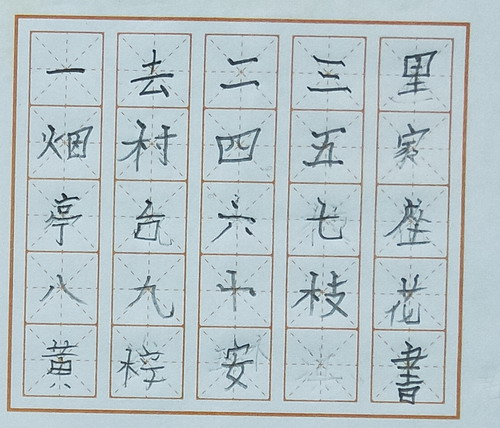 一去二三里
烟村四五家
亭台六七座
八九十枝花
黄梓安 書